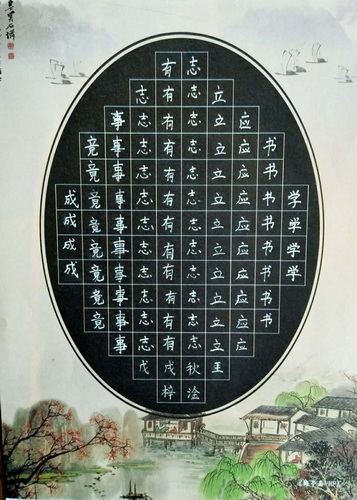 有志
志有志立
事志有志立应
竟事志有志立应书
竟事志有志立应书
成竟事志有志立应书学
成竟事志有志立应书学
成竟事志有志立应书学
成竟事志有志立应书学
竟事志有志立应书
竟事志有志立应书
事志有志立应
戊戌秋王
梓淦